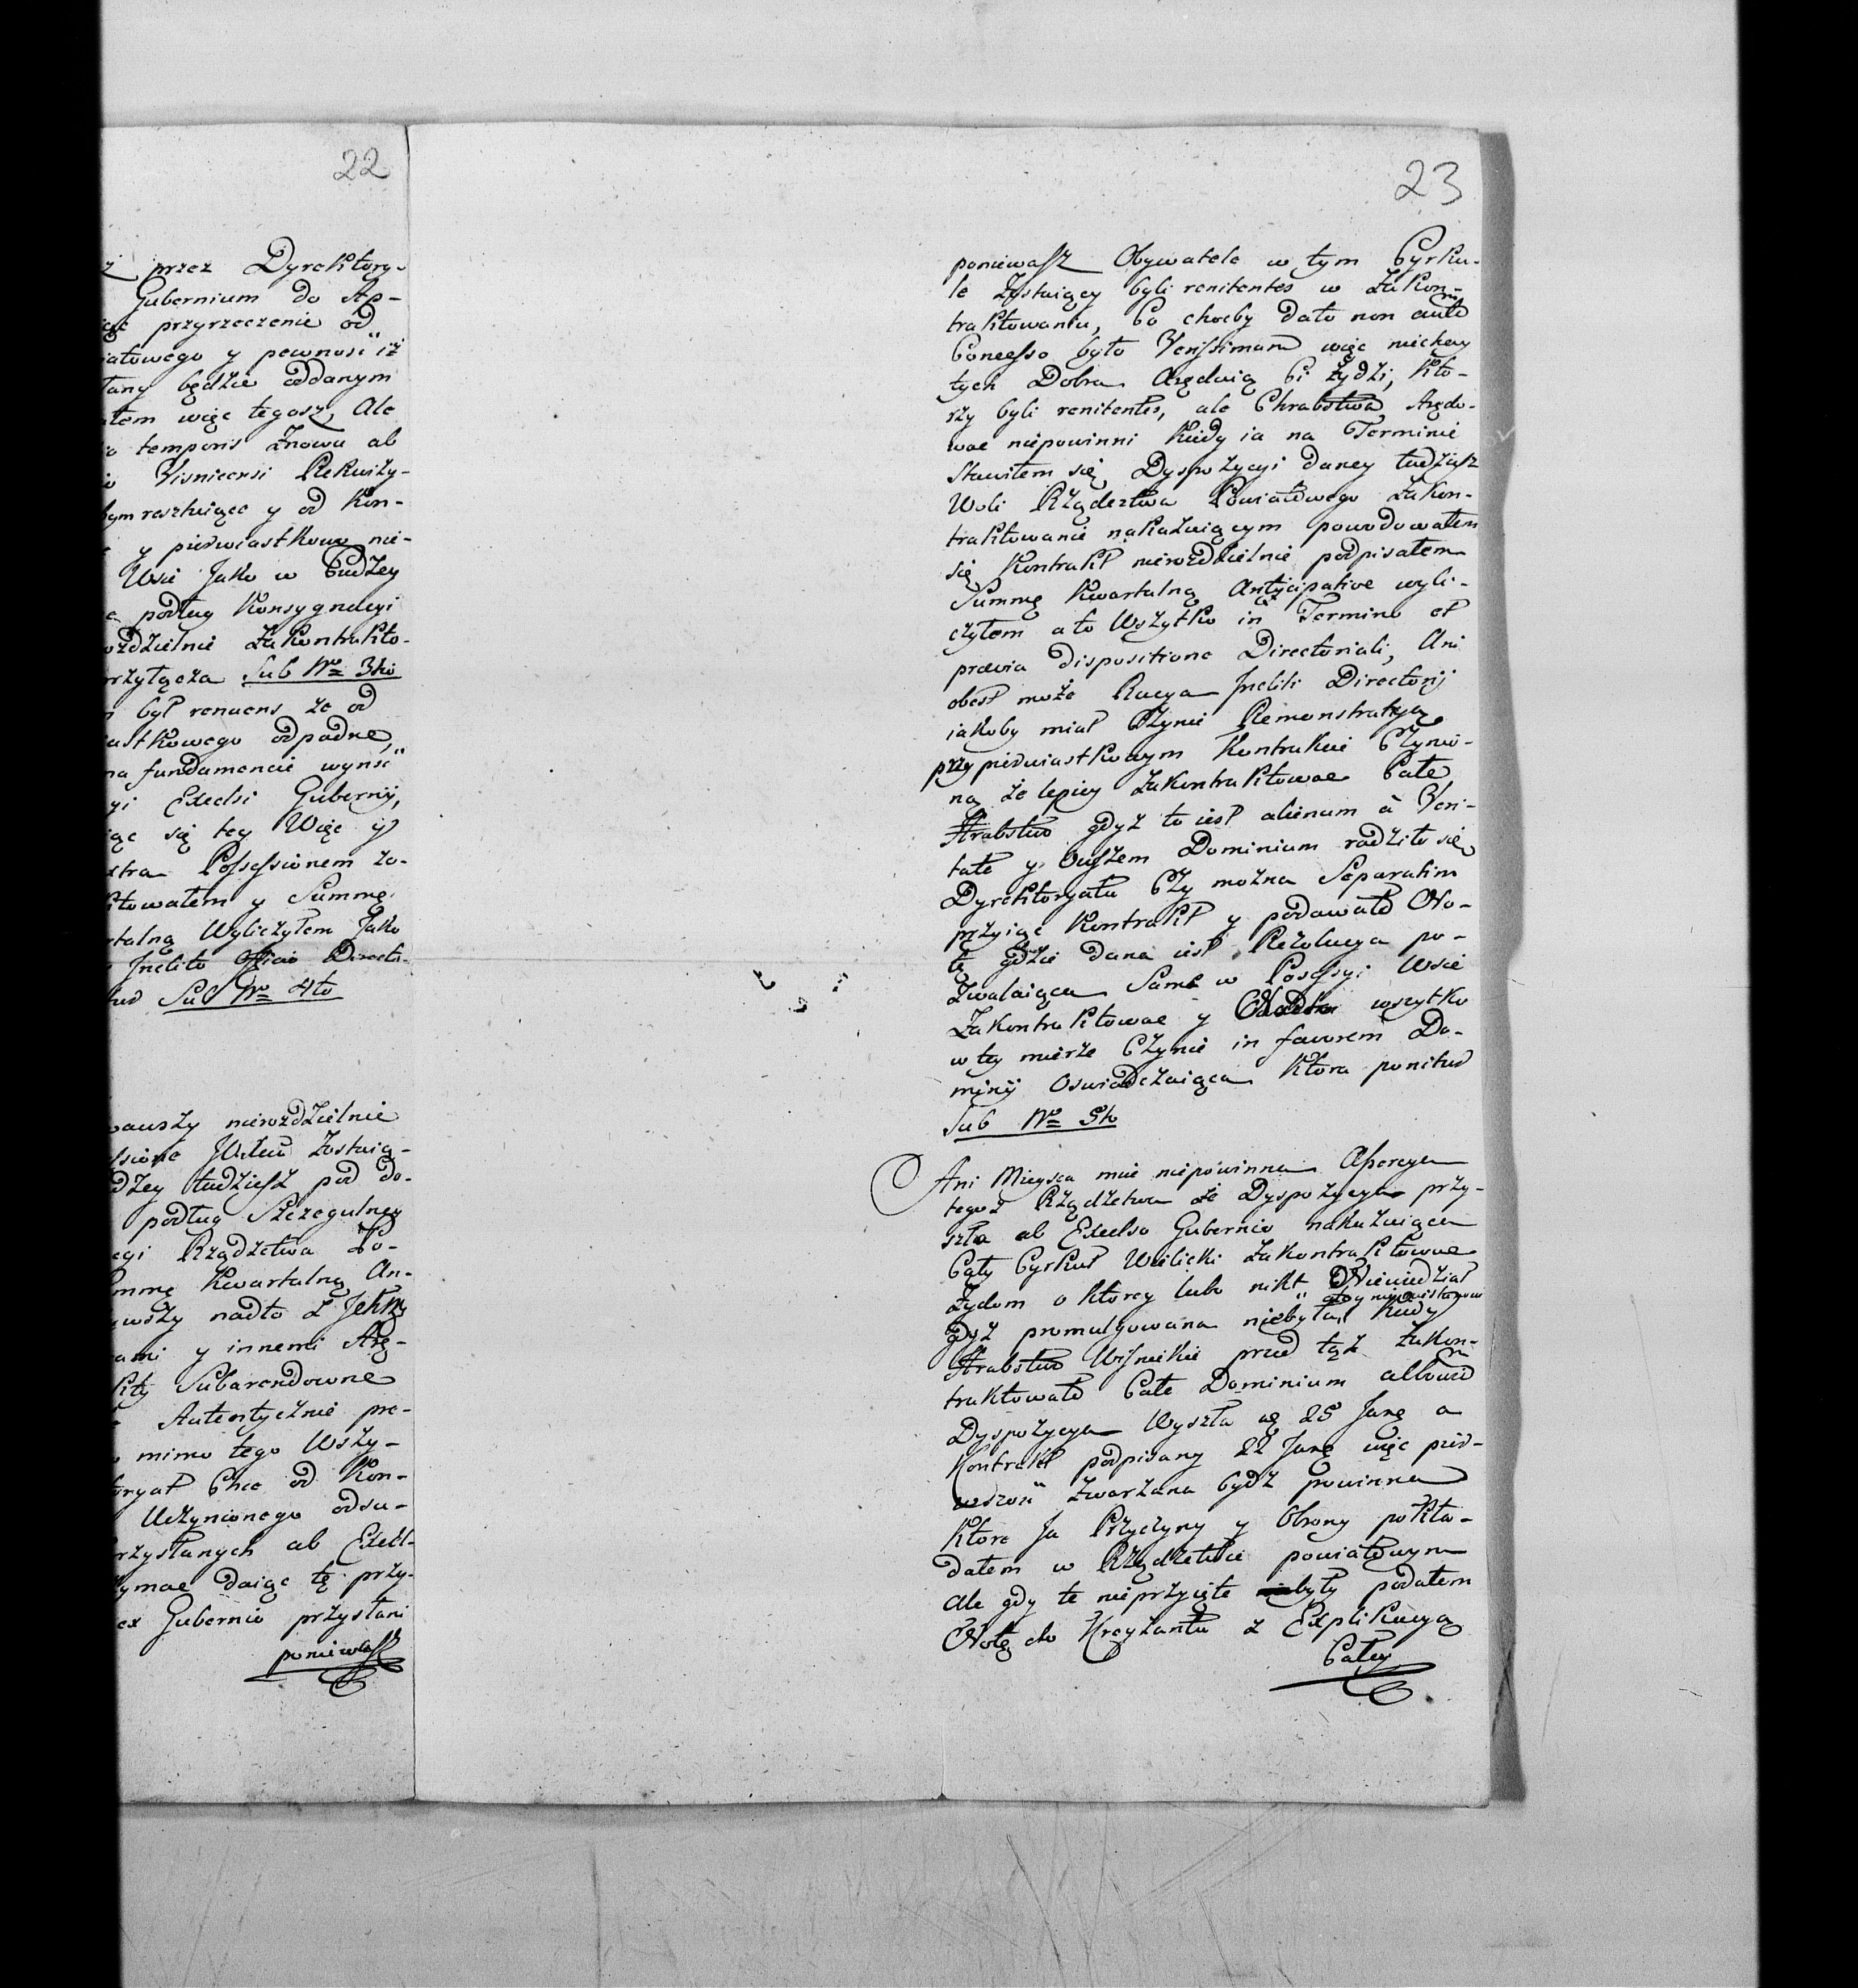 22
ż przez Dyrektory-
Gubernium do Ap-
iąc przyrzeczenie od
iatowego y pewność iż
tany będzie oddanym
atem więc tegosz, Ale
io temporis Znowu ab
io Visnicensi Rekwizy-
bym resztuiąc y od Kon-
y pierwiastkowo nie-
Wsie Jako w Cudzey
podług Konsygnacyi
ozdzielnie Zakontrakto-
rzyłącza Sub Nro 3tio
był renuens że od
iastkowego odpadnę,
na fundamencie wyniść
yi Excelsi Gubernij,
iąc się tey Więc y
xtra Possessionem zo-
ktowałem y Summę
rtalną Wyliczyłem Jako
Inclito Officio Directo-
tur Sub Nro 4to
wawszy nierozdzielnie
ssione zostaią-
dzey tudziesz pod do-
podług Szczegulney
cyi Rządzctwa Po-
mmę Kwartalną An-
wszy nadto z
ami y innemi Arę-
kty Subarendowne
Autentycznie pro-
mimo tego Wszy-
toryat Chce od Kon-
Uczynionego odsu-
rzysłanych ab Excel-
ymać daiąc tę przy-
ex Gubernio przysłani
poniewasz
23
poniewasz Obywatele w tym Cyrku-
le Zostaiący byli renitentes w Zakon-
traktowaniu, bo choćby dato non autem
Concesso było Verissimum więc niechay
tych Dobra Arędują Ci Żydzi, Któ-
rzy byli renitentes, ale Chrabstwa Arędo-
wać niepowinni Kiedy ia na Terminie
Stawiłem się, Dyspozycyi daney tudziesz
Woli Rządcztwa Powiatowego Zakon-
traktowanie nakazuiącym powodowałem
się Kontrakt nierozdzielnie podpisałem
Summę Kwartalną Anticipative wyli-
czyłem a to Wszytko in Termino et
praevia dispositione Directoriali, Ani
obesć może Racya Incliti Directorij
iakoby miał Czynić Remonstracyą
przy pierwiastkowym Kontrakcie Czynio-
ną że lepiey Zakontraktować Całe
Hrabstwo gdyż to iest alienum à Veri-
tate y owszem Dominium radziło się
Dyrektoryatu Czy można Separatim
przyiąć Kontrakt y podawało No-
tę gdzie dana iest Rezolucya po-
zwalaiąca Same w Posessyi Wsie
Zakontraktować y wszytko
w tey mierze Czynić in favorem Do-
minij Oswiadczaiąca Która ponitur
Sub Nro 5to
Ani Mieysca mieć niepowinna Assercya
tegoż Rządzctwa że Dyspozycya przy-
szła ab Excelso Gubernio nakazuiąca
Cały Cyrkuł Wielicki Zakontraktować
Żydom o Ktorey lubo nikt Niewiedział
gdyż promulgowana niebyła, Kiedy
Hrabstwo Wisnickie przed tąż Zakon-
traktowało Całe Dominium albowiem
Dyspozycya Wyszła 25 Junij a
Kontrakt podpisany 22 Junij więc pier-
wszość Zważana bydź powinna
Które Ja Przyczyny y Obrony pokła-
dałem w Rządzctwie powiatowym
Ale gdy te nieprzyięte były podałem
Notę do Kreyzamtu z Explikacyą
Całey